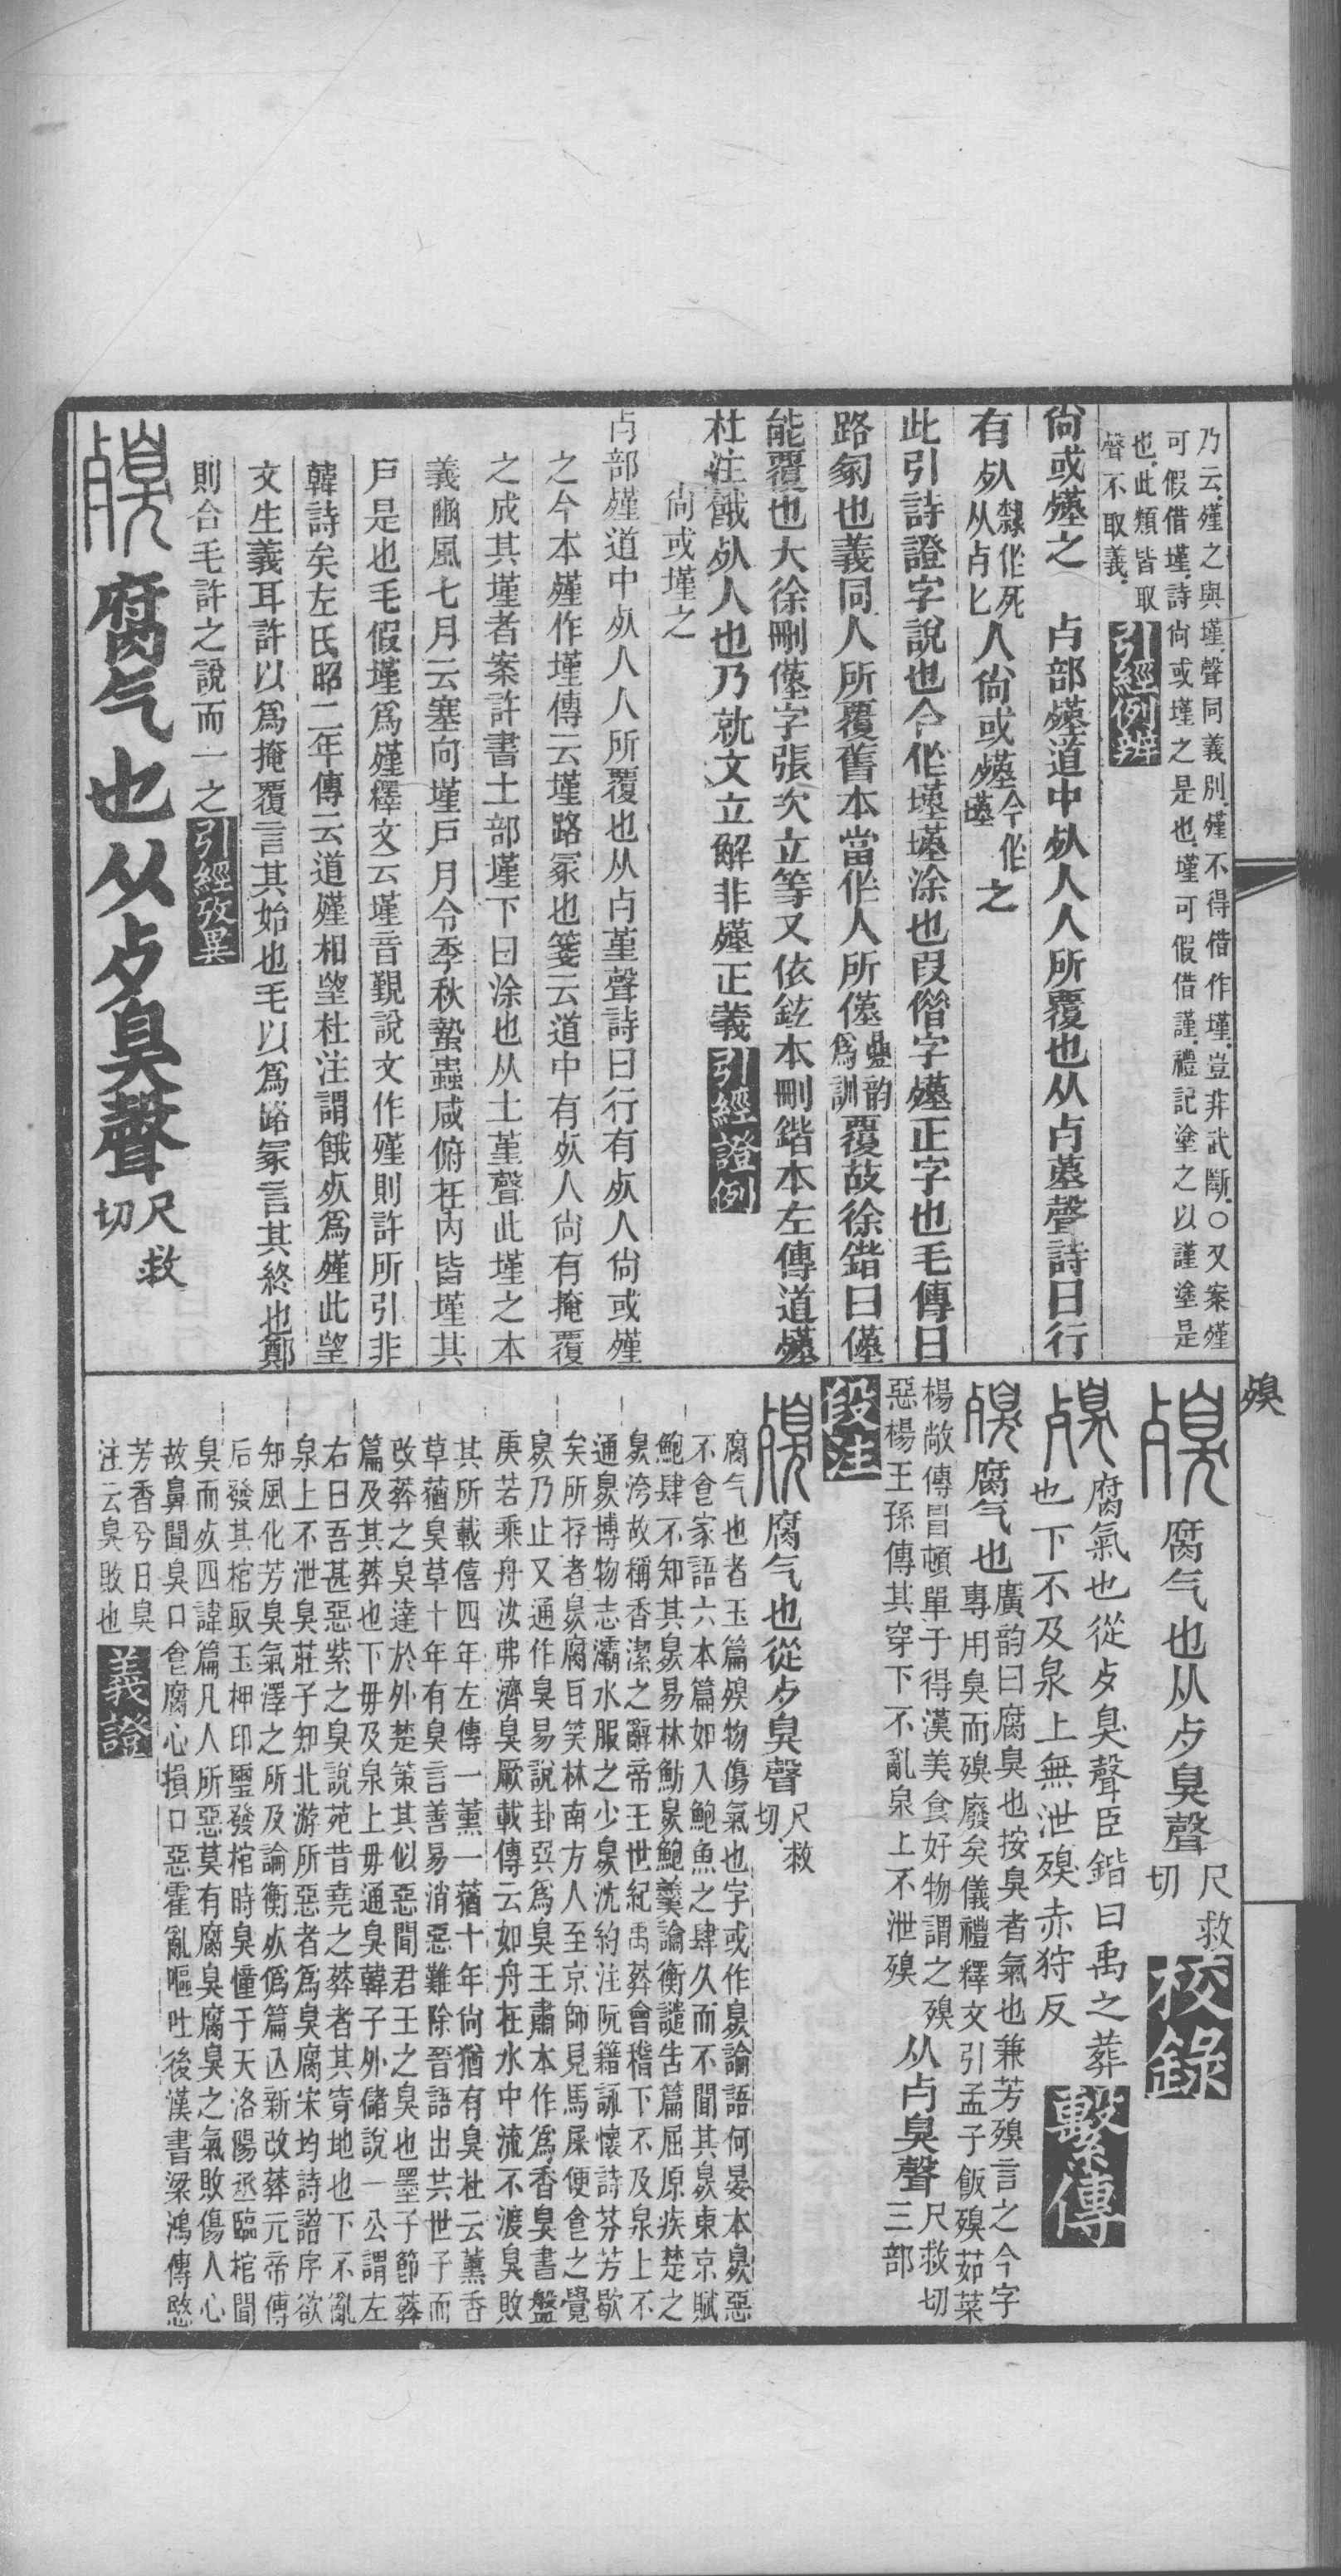 乃云殣之與墐聲同義別殣不得借作墐豈非武斷○又案殣
可假借墐詩尙或墐之是也墐可假借謹禮記塗之以謹塗是
也此類皆取
聲不取義
引經例辨
尙或殣之　歺部殣道中歺人人所覆也从歺堇聲詩曰行
有歺隸作死从歺匕人尙或殣今作墐之
此引詩證字說也今作墐墐涂也叚借字殣正字也毛傳曰
路冢也義同人所覆舊本當作人所僅疊韵爲訓覆故徐鍇曰僅
能覆也大徐刪僅字張次立等又依鉉本刪鍇本左傳道殣
杜注餓死人也乃就文立解非殣正義引經證例
尙或墐之
歺部殣道中死人人所覆也从歺堇聲詩曰行有死人尙或殣
之今本殣作墐傳云墐路冢也箋云道中有死人尙有掩覆
之成其墐者案許書土部墐下曰涂也从土堇聲此墐之本
義豳風七月云塞向墐戸月令季秋蟄蟲咸俯在內皆墐其
戸是也毛假墐爲殣釋文云墐音覲說文作殣則許所引非
韓詩矣左氏昭二年傳云道殣相望杜注謂餓死爲殣此望
文生義耳許以爲掩覆言其始也毛以爲路冢言其終也鄭
則合毛許之說而一之引經攷異
殠腐气也从歺臭聲尺救切
殠
殠腐气也从歺臭聲尺救切校錄
殠腐氣也從歺臭聲臣鍇曰禹之葬
也下不及泉上無泄殠赤狩反繫傳
殠腐气也廣韵曰腐臭也按臭者氣也兼芳殠言之今字
專用臭而殠廢矣儀禮釋文引孟子飯殠茹菜
楊敞傳冒頓單于得漢美食好物謂之殠
惡楊王孫傳其穿下不亂泉上不泄殠
从歺臭聲尺救切三部
段注
殠腐气也從歺臭聲尺救切
腐气也者玉篇殠物傷氣也字或作臰論語何晏本臰惡
不食家語六本篇如入鮑魚之肆久而不聞其臰東京賦
鮑肆不知其臰易林魴臰鮑羹論衡譴告篇屈原疾楚之
臰洿故稱香潔之辭帝王世紀禹葬會稽下不及泉上不
通臰博物志灞水服之少臰沈約注阮籍詠懷詩芬芳歇
矣所存者臰腐㠯笑林南方人至京師見馬屎便食之覺
臰乃止又通作臭易說卦巽爲臭王肅本作爲香臭書盤
庚若乘舟汝弗濟臭厥載傳云如舟在水中流不渡臭敗
其所載僖四年左傳一薰一蕕十年尙猶有臭杜云薰香
草蕕臭草十年有臭言善易消惡難除晉語出共世子而
改葬之臭達於外楚策其似惡聞君王之臭也墨子節葬
篇及其葬也下毋及泉上毋通臭韓子外儲說一公謂左
右曰吾甚惡紫之臭說苑昔堯之葬者其穿地也下不亂
泉上不泄臭莊子知北游所惡者爲臭腐宋均詩譜序欲
知風化芳臭氣澤之所及論衡死僞篇亾新改葬元帝傅
后發其棺取玉柙印璽發棺時臭憧于天洛陽丞臨棺聞
臭而死四諱篇凡人所惡莫有腐臭腐臭之氣敗傷人心
故鼻聞臭口食腐心損口惡霍亂嘔吐後漢書梁鴻傳愍
芳香兮日臭
注云臭敗也
義證